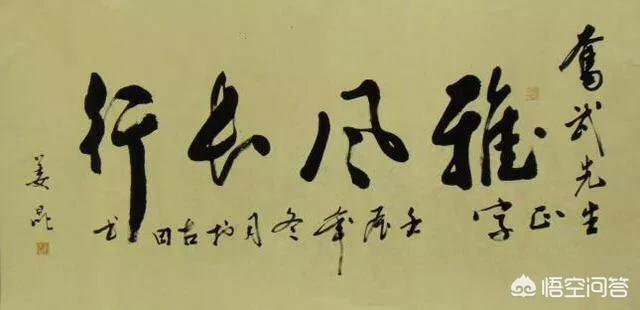 奮武先生
正字
雅风长行
壬辰年冬月於古田
姜昆
悟空问答